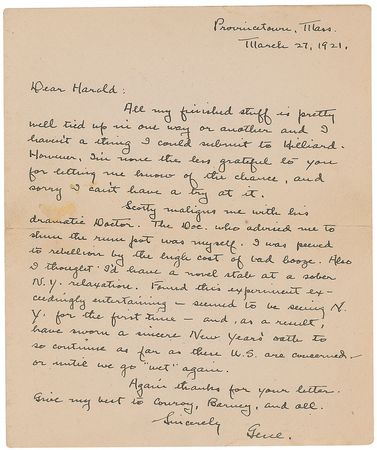 Provincetown, Mass.
March 27, 1921.
Dear Harold:
All my finished stuff is pretty
well tied up in one way or another and I
haven't a thing I could submit to Hilliard.
However, I'm none the less grateful to you
for letting me know of the chance, and
sorry I can't have a try at it.
Scotty maligns me with his
dramatic Doctor. The Doc. who advised me to
shun the rum pot was myself. I was peeved
to rebellion by the high cost of bad booze. Also
I thought I'd have a novel stab at a sober
N.Y. relaxation. Found this experiment ex-
ceedingly entertaining – seemed to be seeing N.
Y. for the first time – and, as a result,
have sworn a sincere New Year's oath to
so continue as far as these U.S. are concerned –
or until we go "wet" again.
Again thanks for your letter.
Give my best to Conroy, Barney, and all.
Sincerely
Gene.